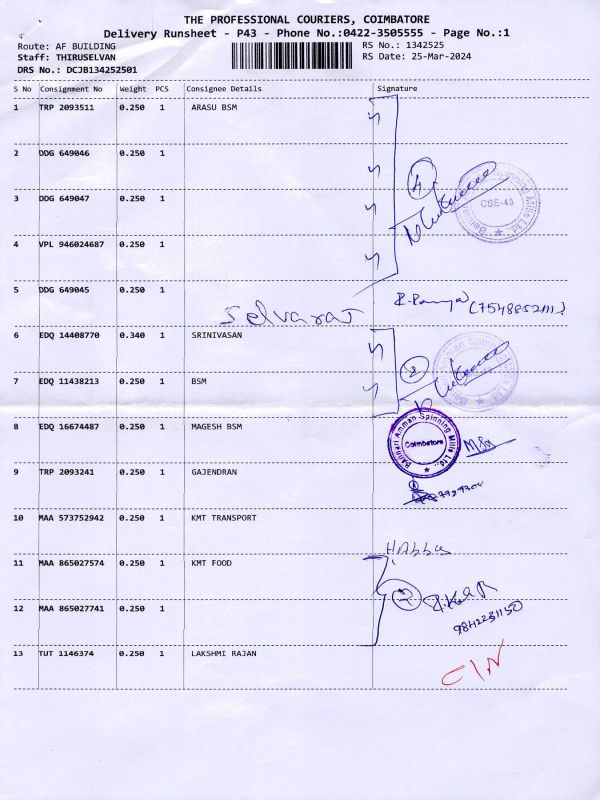 THE PROFESSIONAL COURIERS, COIMBATORE
Delivery Runsheet - P43 - Phone No.:0422-3505555 - Page No.:1
Route: AF BUILDING
RS No.: 1342525
Staff: THIRUSELVAN
RS Date: 25-Mar-2024
DRS No.: DCJB134252501
S No Consignment No Weight PCS Consignee Details Signature
1 TRP 2093511 0.250 1 ARASU BSM
2 DDG 649046 0.250 1
3 DDG 649047 0.250 1
4 VPL 946024687 0.250 1
4
CBE-43
5 DDG 649045 0.250 1
Selvaraj
6 EDQ 14408770 0.340 1 SRINIVASAN
7 EDQ 11438213 0.250 1 BSM
2
8 EDQ 16674487 0.250 1 MAGESH BSM
Bannari Amman Spinning Mills Ltd.
Coimbatore
9 TRP 2093241 0.250 1 GAJENDRAN
10 MAA 573752942 0.250 1 KMT TRANSPORT
11 MAA 865027574 0.250 1 KMT FOOD
2
12 MAA 865027741 0.250 1
13 TUT 1146374 0.250 1 LAKSHMI RAJAN
C/N